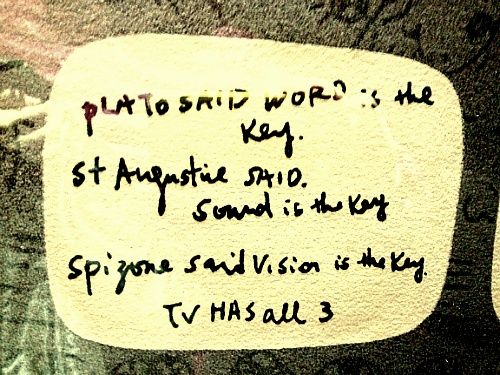 PLATO SAID WORD is the
Key.
St Augustine SAID.
Sound is the Key
Spizone said Vision is the Key.
TV HAS all 3